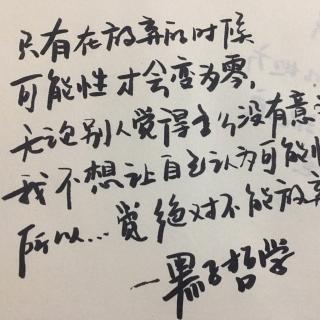 只有在放弃的时候
可能性才会变为零,
无论别人觉得没有意
我不想让自己认为可能性
所以...觉绝对不能放弃
—黑子哲学